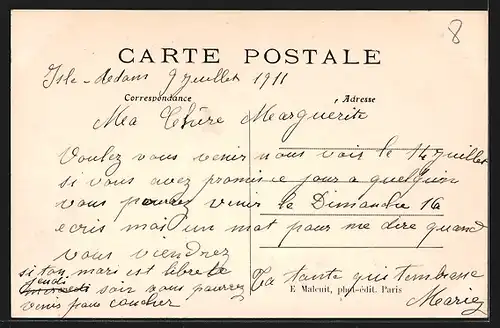 8
CARTE POSTALE
Isle-Adam 9 juillet 1911
Correspondance
Adresse
Ma Chère Marguérite
Voulez vous venir nous voir le 14 juillet
si vous avez promise jour a quelquin
vous pouvez venir le Dimanche 16
ecris moi un mot pour me dire quand
vous viendrez
si ton mari est libre le
jeudi
mercredi soir vous pourrez
venir pour coucher
Ta tante qui t'embrasse
E Malcuit, phot-édit. Paris
Marie